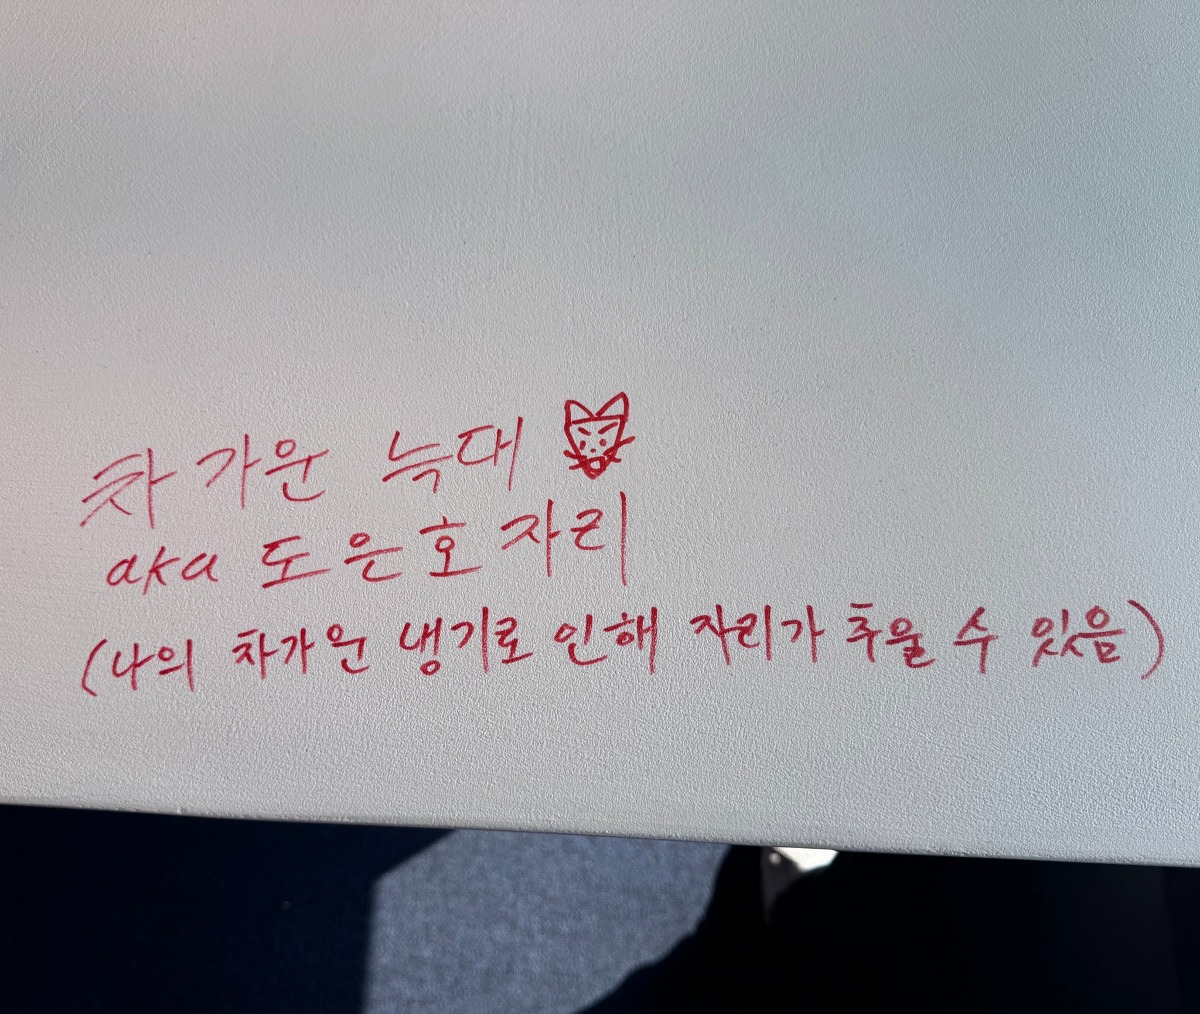 차가운 늑대
aka 도은호 자리
(나의 차가운 냉기로 인해 자리가 추울 수 있음)